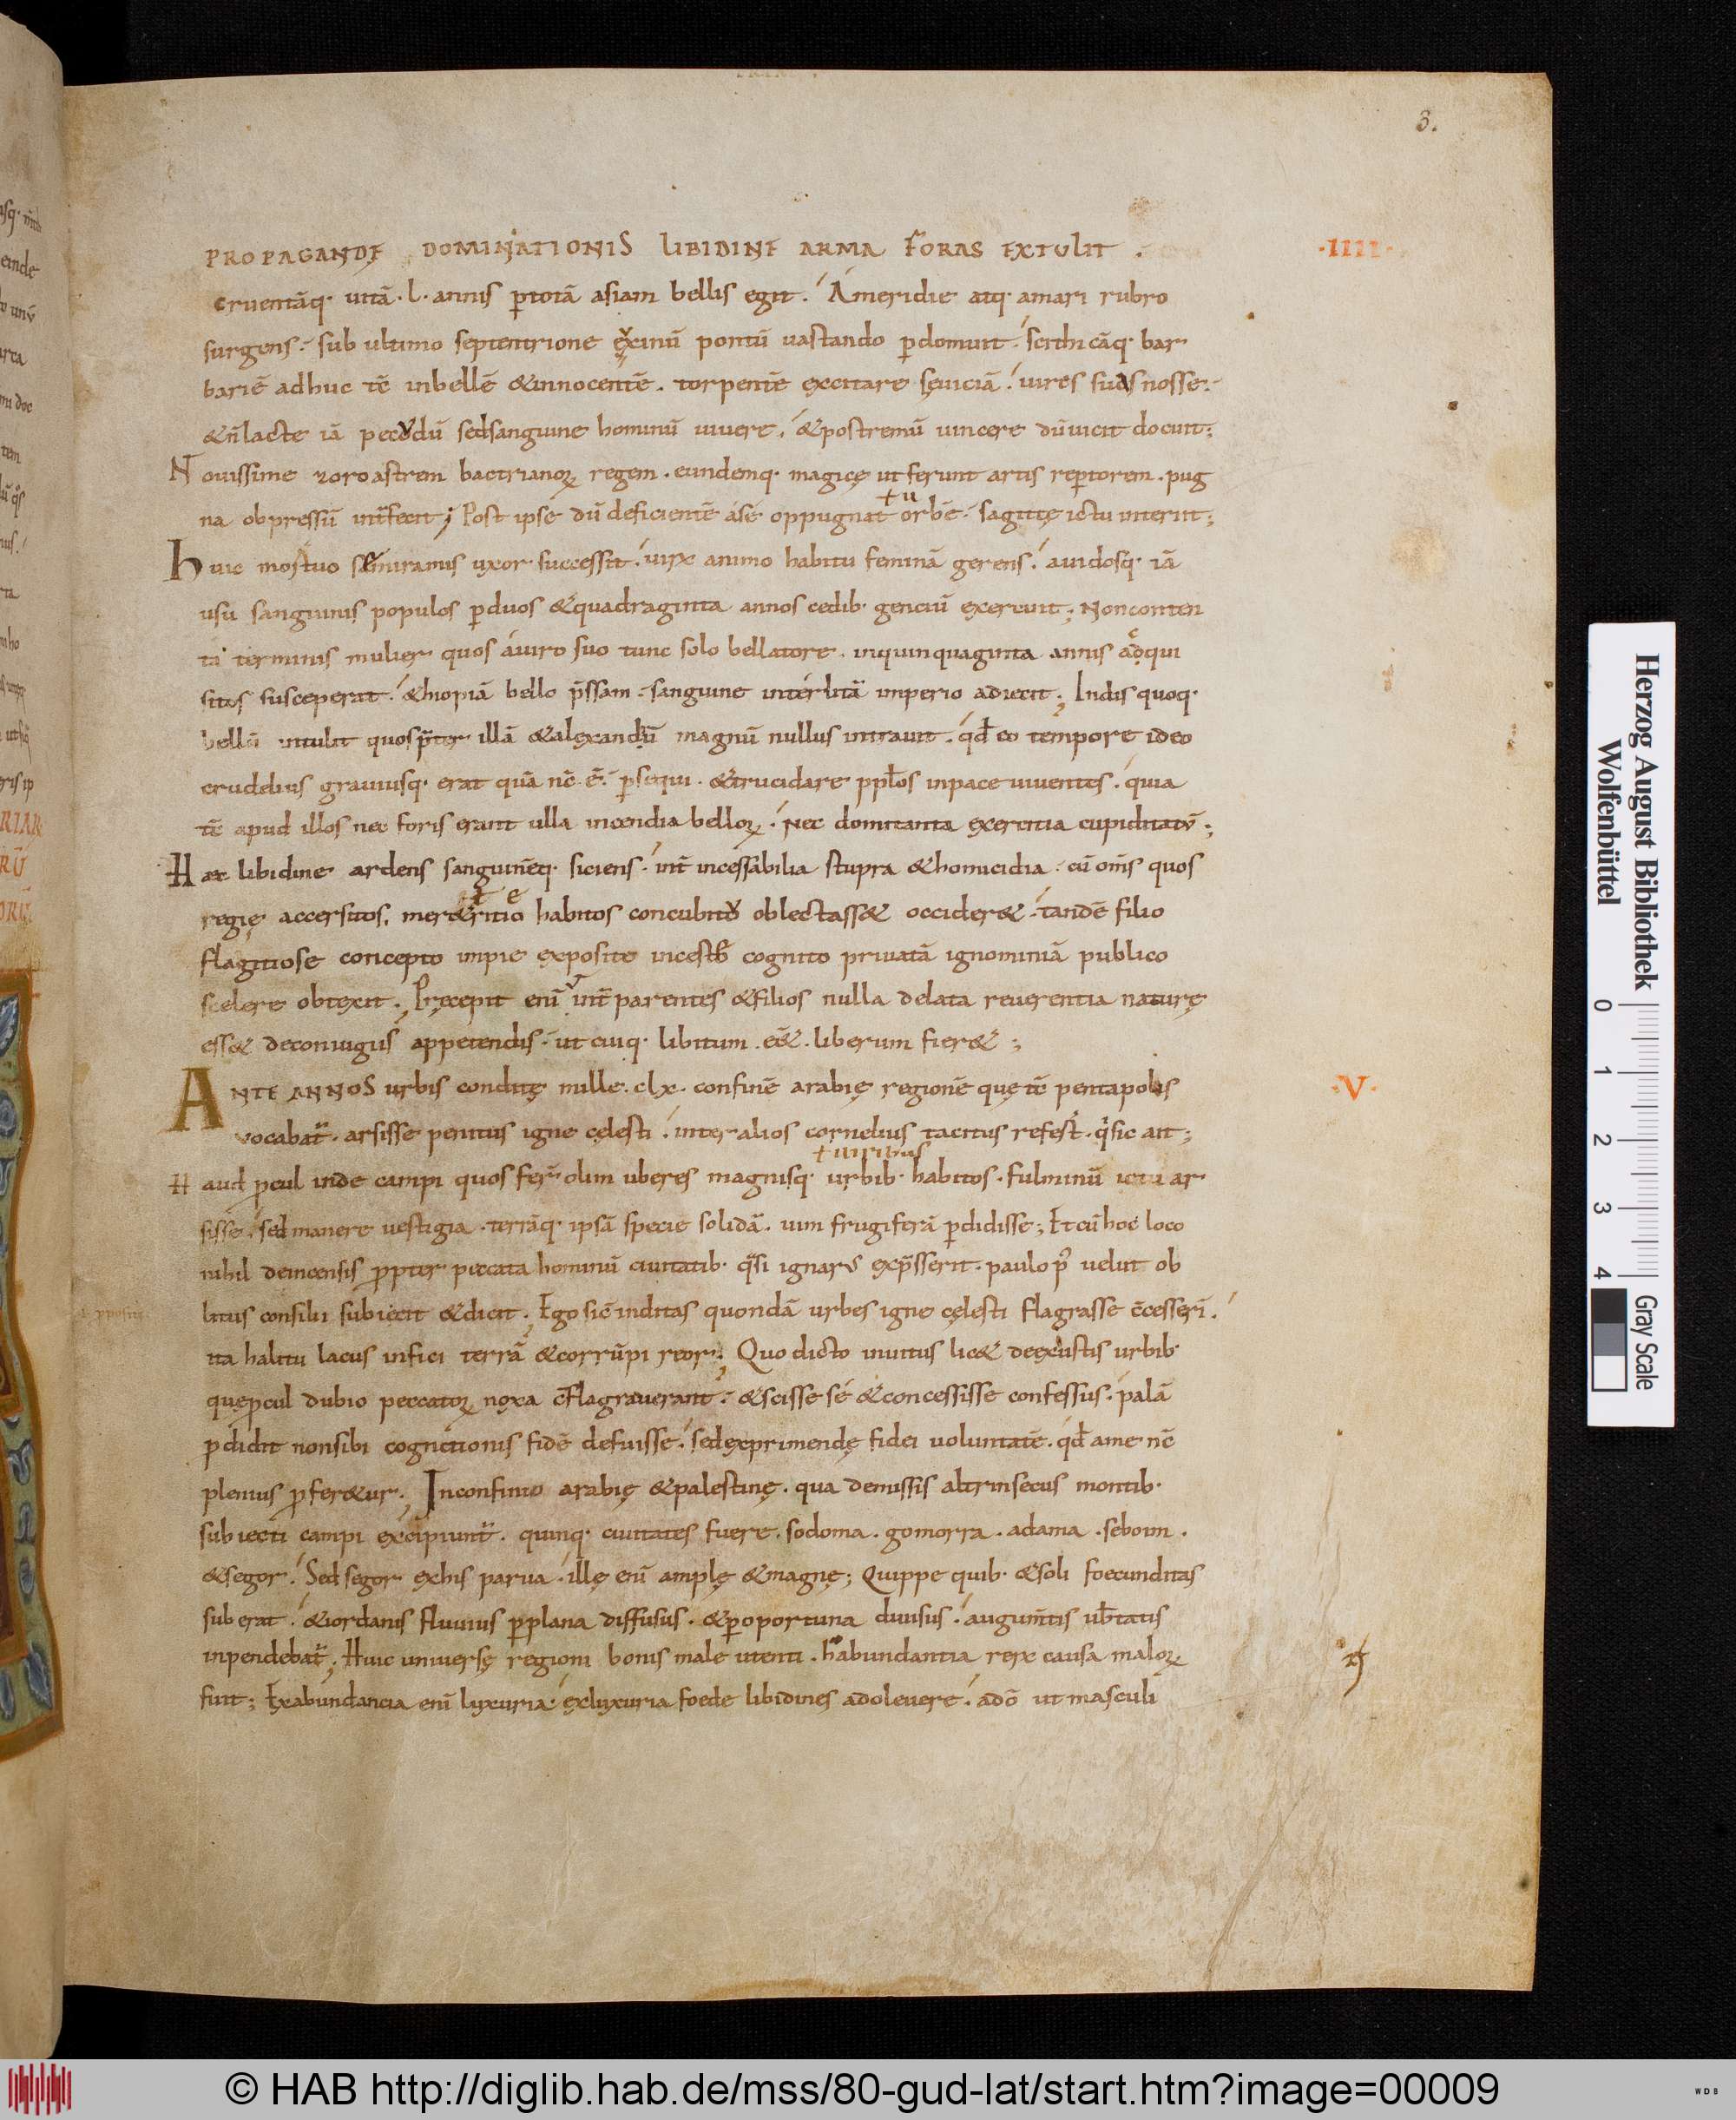 3.
PROPAGANDĘ DOMINATIONIS LIBIDINE ARMA FORAS EXTULIT . ·IIII·
cruentāq· uitā · l · annis ꝑtotā asiam bellis egit . Ameridie atq· amari rubro
surgens . sub ultimo septentrione euxinū pontū uastando ꝑdomuit . scithicāq· bar
bariē adhuc tē inbellē &innocentē . torpentē excitare sęuiciā . uires suas nosse .
&n̄ lacte iā pecudū sedsanguine hominū uiuere . &postremū uincere dū uicit docuit ;
Nouissime zoroastrem bactrianoꝝ regem . eundemq· magicę ut ferunt artis reꝑtorem . pug
na obpressū int̄fecit ; Post ipse dū deficientē ase oppugnat orbē . sagittę ictu interiit ;
ł u
huic mortuo semiramis uxor successit . uirx animo habitu feminā gerens . auidosq· iā
usu sanguinis populos ꝑduos &quadraginta annos cedib· genciū exercuit ; Nonconten
ta terminis mulier quos auiro suo tunc solo bellatore . inquinquaginta annis adqui
sitos susceperat . &hiopiā bello p̄ssam . sanguine interlitā imperio adiecit ; Indis quoq·
bellū intulit quosp̄ter illā &alexandrū magnū nullus intrauit . qđ eo tempore ideo
crudelius grauiusq· erat quā nc̄ ē . ꝑsequi . &trucidare ppłos inpace uiuentes . quia
tē apud illos nec foris erant ulla incendia belloꝝ . Nec domi tanta exercitia cupiditatū ;
Haec libidine ardens sanguinēq· siciens . int̄ incessabilia stupra &homicidia . cū om̄s quos
regię accersitos . mer&ricio habitos concubitu oblectass& occider& . tandē filio
flagitiose concepto impie exposite incestū cognito priuatā ignominiā publico
scelere obtexit . Pręcepit enī int̄ parentes &filios nulla delata reuerentia naturę
ess& deconiugiis appetendis . ut cuiq· libitum . eē& . liberum fier& ;
ANTE ANNOS urbis conditę mille . clx . confinē arabię regionē quę tē pentapolis ·V·
vocabat᷑ . arsisse penitus igne cęlesti . interalios cornelius tacitus refert . q̇sic ait ;
ł uiribus
Haud ꝓcul inde campi quos fer̄ olim uberes magnisq· urbib· habitos . fulminū ictu ar
sisse . sed manere uestigia . terrāq· ipsā specie solidā . uim frugiferā ꝑdidisse ; Et cū hoc loco
nihil deincensis ꝓpter peccata hominū ciuitatib· q̄si ignarus exp̄sserit . paulo p᷒ velut ob
litus consilii subiecit &dicit . Ego sic̄ inditas quondā urbes igne cęlesti flagrasse c̄cesseri .
ita halitu lacus infici terrā &corrūpi reor ; Quo dicto inuitus lic& deexustis urbib·
queꝓcul dubio peccatoꝝ noxa c̄flagrauerant . &scisse se &concessisse confessus . palā
ꝓdidit nonsibi cognitionis fidē defuisse . sedexprimendę fidei uoluntatē . qđ ame nc̄
plenius ꝓfer&ur . Inconfinio arabię &palestinę . qua demissis altrinsecus montib·
subiecti campi excipiunt᷑ . quinq· ciuitates fuere . sodoma . gomorra . adama . seboim .
&segor . Sed segor exhis parua . illę enī amplę &magnę ; Quippe quib· &soli foecunditas
suberat . &iordanis fluuius ꝑplana diffusus . &ꝑoportuna diuisus . augum̄tis ub̄tatis
inpendebat᷑ ; Huic uniuersę regioni bonis male utenti . habundantia reix causa maloꝝ
fuit ; Exabundancia enī luxuria . exluxuria foede libidines adoleuere . adō ut masculi
Herzog August Bibliothek
Wolfenbüttel
0 1 2 3 4
Gray Scale
© HAB http://diglib.hab.de/mss/80-gud-lat/start.htm?image=00009
WDB